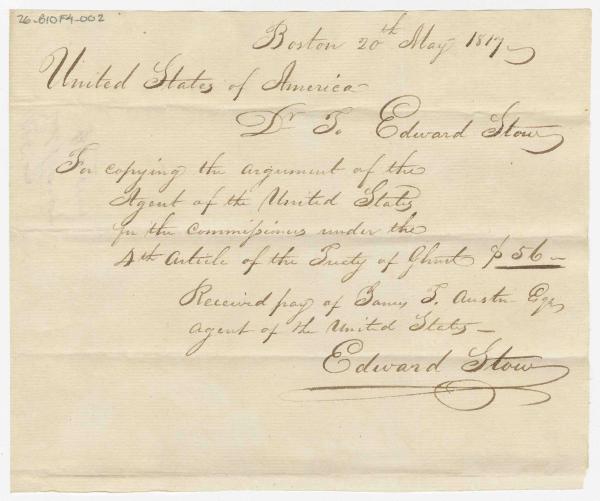 26-B10F4-002
Boston 20th May 1817
United States of America
Dr To Edward Stow
For copying the argument of the
Agent of the United States
for the commissioners under the
4th Article of the Treety of Ghent $56—
Received pay of James T. Austin Esqr
agent of the United States—
Edward Stow